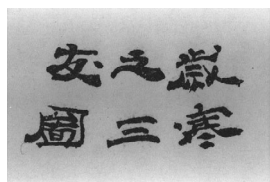 歲寒
之三
友圖